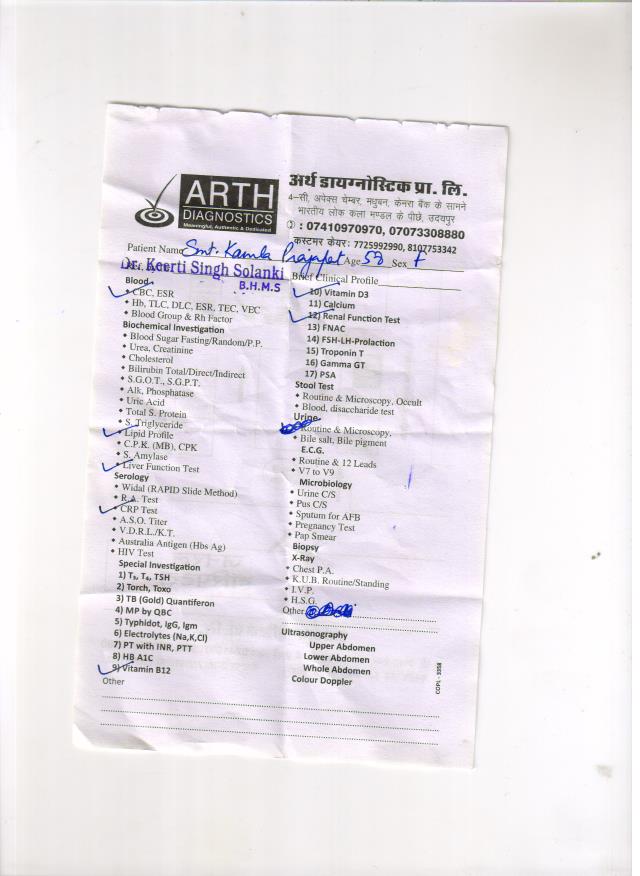 ARTH
DIAGNOSTICS
Meaningful, Authentic & Dedicated
अर्थ डायग्नोस्टिक प्रा. लि.
4–सी, अपेक्स चेम्बर, मधुबन, केनरा बैंक के सामने
भारतीय लोक कला मण्डल के पीछे, उदयपुर
: 07410970970, 07073308880
कस्टमर केयर: 7725992990, 8107753342
Patient Name Smt. Kamla Prajapat Age 58 Sex F
Dr. Keerti Singh Solanki
B.H.M.S
Brief Clinical Profile
Blood
CBC, ESR
Hb, TLC, DLC, ESR, TEC, VEC
Blood Group & Rh Factor
Biochemical Investigation
Blood Sugar Fasting/Random/P.P.
Urea, Creatinine
Cholesterol
Bilirubin Total/Direct/Indirect
S.G.O.T., S.G.P.T.
Alk, Phosphatase
Uric Acid
Total S. Protein
S. Triglyceride
Lipid Profile
C.P.K. (MB), CPK
S. Amylase
Liver Function Test
Serology
Widal (RAPID Slide Method)
R.A. Test
CRP Test
A.S.O. Titer
V.D.R.L./K.T.
Australia Antigen (Hbs Ag)
HIV Test
Special Investigation
1) T3, T4, TSH
2) Torch, Toxo
3) TB (Gold) Quantiferon
4) MP by QBC
5) Typhidot, IgG, Igm
6) Electrolytes (Na,K,Cl)
7) PT with INR, PTT
8) HB A1C
9) Vitamin B12
Other
10) Vitamin D3
11) Calcium
12) Renal Function Test
13) FNAC
14) FSH-LH-Prolaction
15) Troponin T
16) Gamma GT
17) PSA
Stool Test
Routine & Microscopy, Occult
Blood, disaccharide test
Urine
Routine & Microscopy.
Bile salt, Bile pigment
E.C.G.
Routine & 12 Leads
V7 to V9
Microbiology
Urine C/S
Pus C/S
Sputum for AFB
Pregnancy Test
Pap Smear
Biopsy
X-Ray
Chest P.A.
K.U.B. Routine/Standing
I.V.P.
H.S.G.
Other
Ultrasonography
Upper Abdomen
Lower Abdomen
Whole Abdomen
Colour Doppler
COPL - 9358